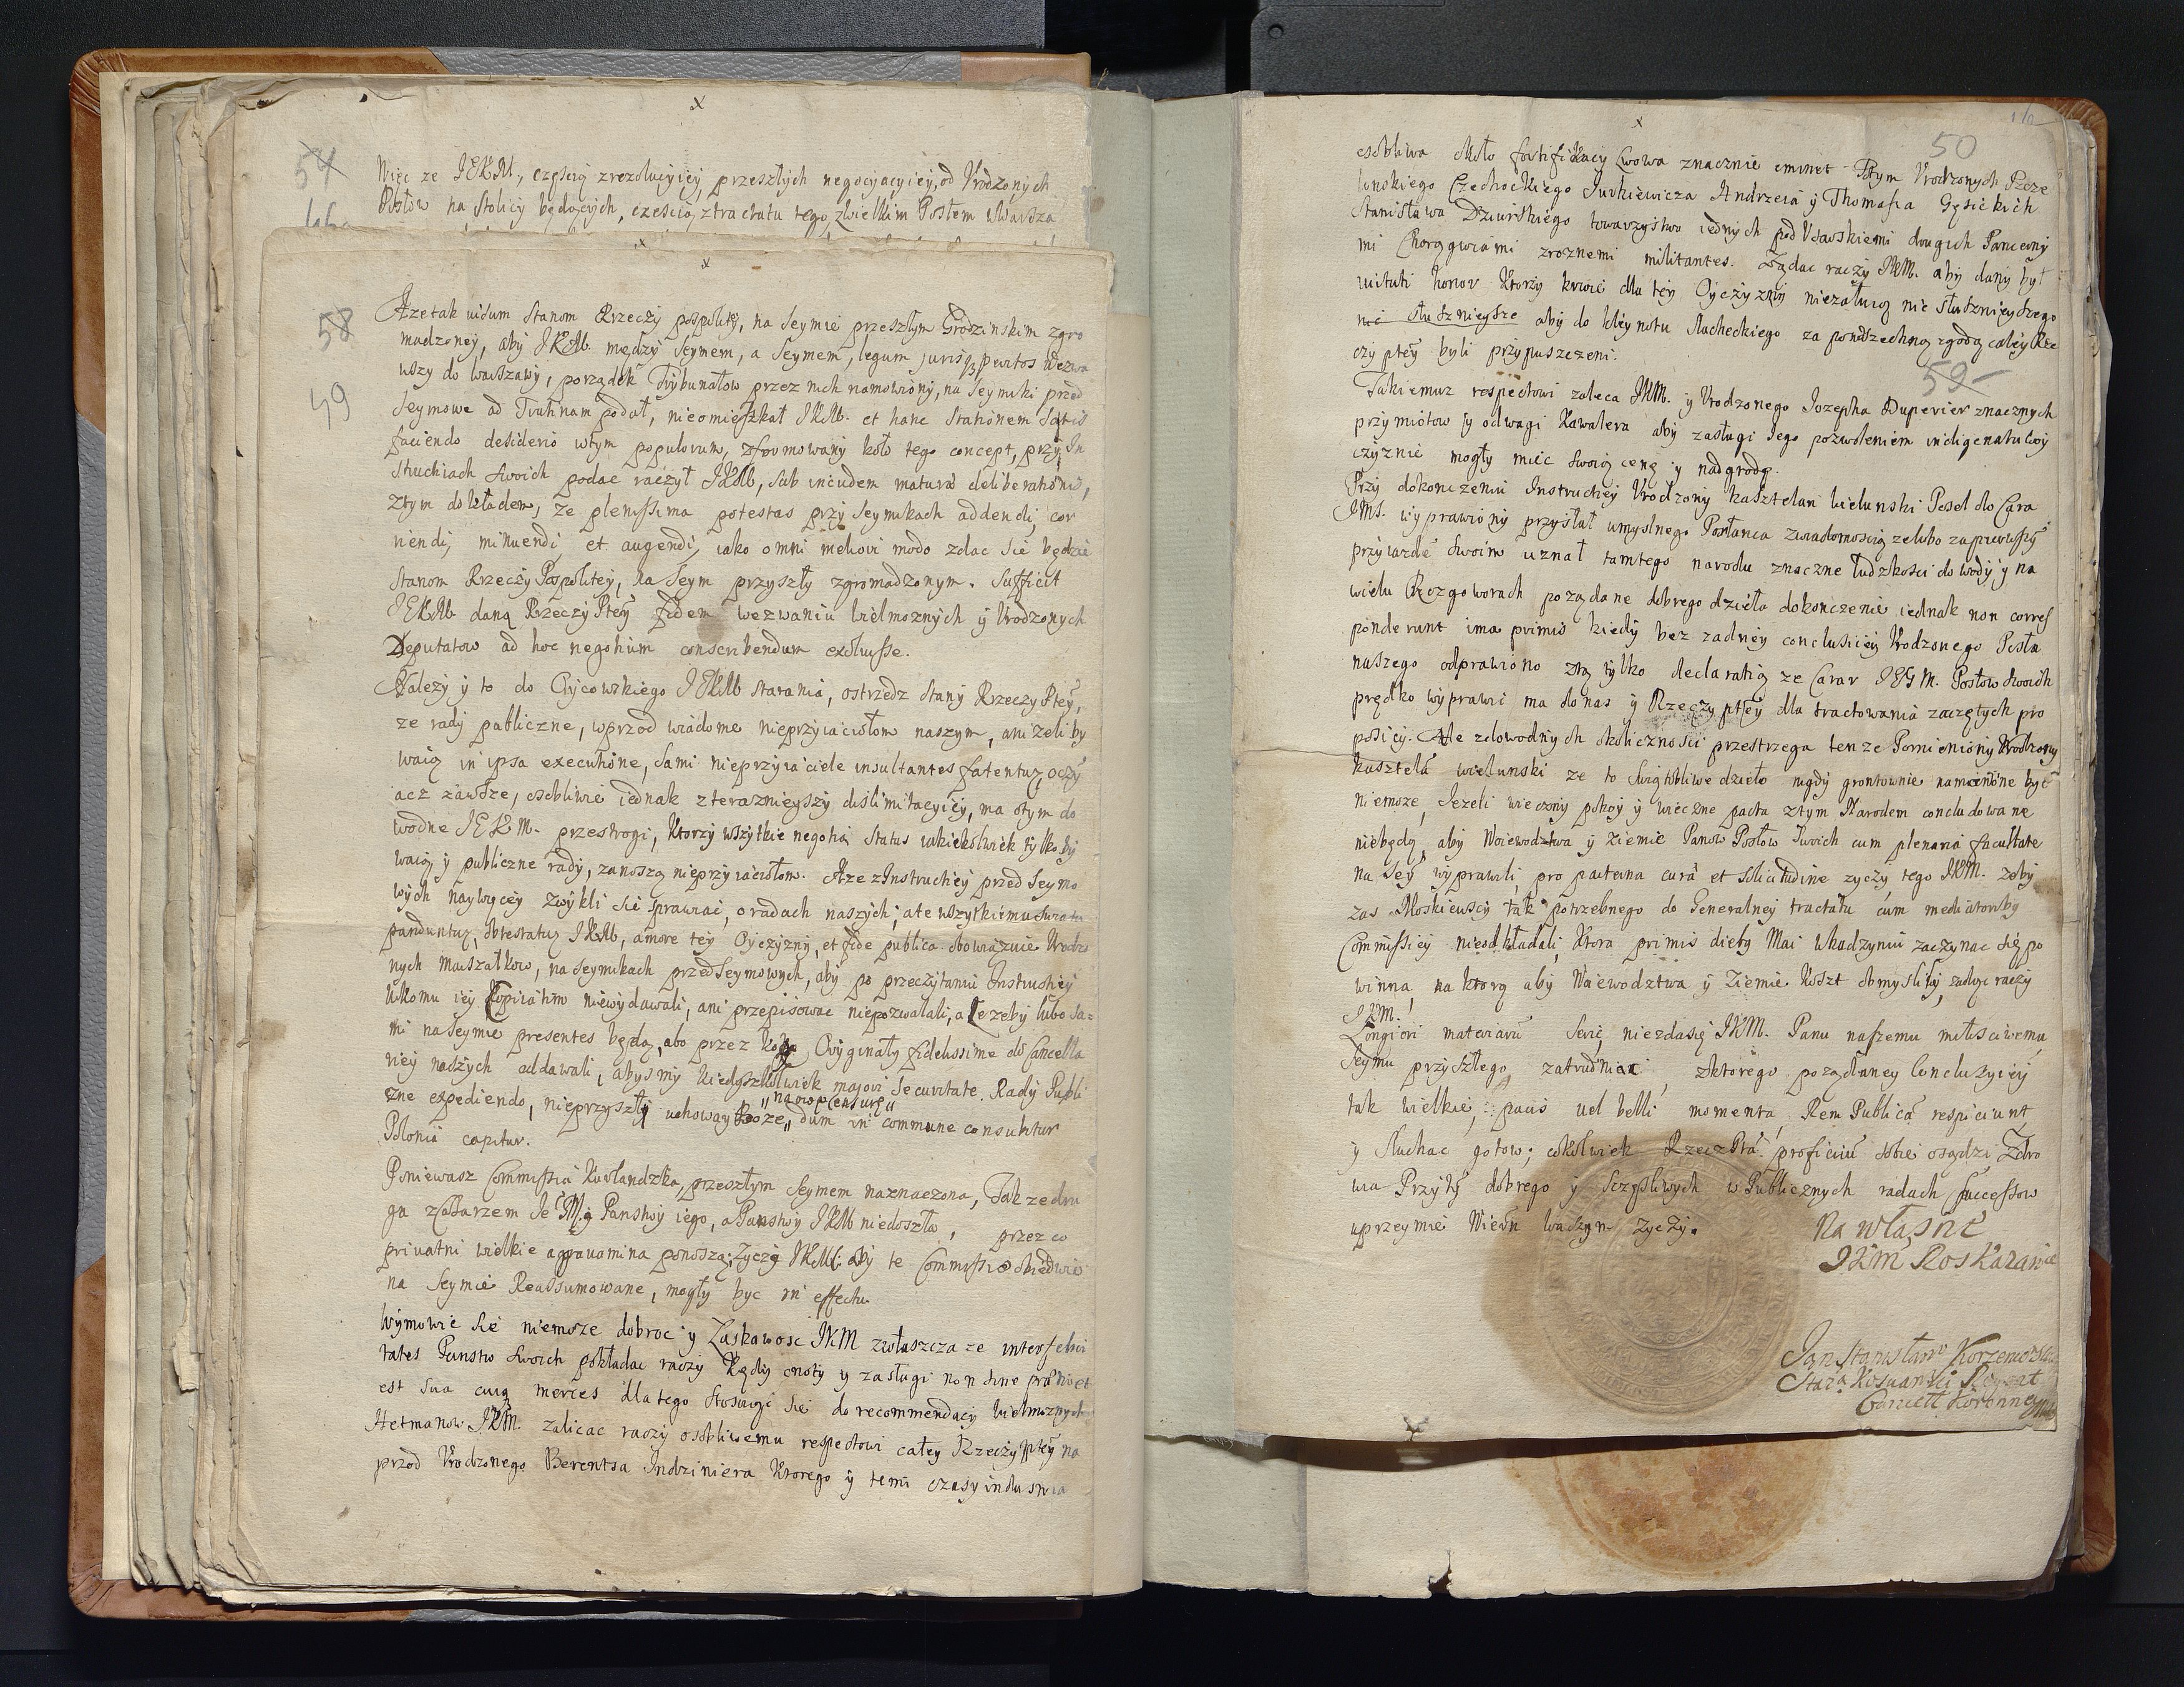 x
54
Więc ze JEKM., częścią zrezolucyiey przeszłych negocyacyiey, od Vrodzonych
Posłow na Stolicy będących, częścią ztractatu tego, zwielkim Posłem w Warsza
x
x
58
49
Aze tak uisum Stanom Rzeczy pospolitey, na Seymie przeszłym Grodzinskim zgro
madzoney, aby JKM. między Seymem, a Seymem, legum jurisq peritos wezwa
wszy do warszawy, porządek Trybunałow przez nich namowiony, na Seymiki przed
Seymowe ad Trutinam podał, nieomieszkał JKM. et hanc Stationem Satis
faciendo desiderio wtym populorum, zformowany koło tego concept, przy In
structiach swoich podac raczył JKM, sub incudem maturae deliberationis,
ztym dokładem, ze plenissima potestas przy Seymikach addendi, cor
riendi, minuendi, et augendi, iako omni meliori modo zdac się będzie
Stanom Rzeczy Pospolitey, na Seym przyszły zgromadzonym. Sufficit
JEKM daną Rzeczy Ptey fidem wezwaniu wielmoznych y Vrodzonych
Deputatow ad hoc negotium conscribendum exoluisse.
Nalezy y to do Oycowskiego JEKM starania, ostrzedz Stany Rzeczy Ptey,
ze rady publiczne, wprzod wiadome nieprzyiaciołom naszym, anizeli by
waią in ipsa executione, sami nieprzyiaciele insultantes fatentur, oczy
acz zawsze, osobliwie iednak zterazniejszy dislimitacyiey, ma otym do
wodne JEKM. przestrogi, ktorzy wszytkie negotia Status iakiekolwiek tylko by
waią y publiczne rady, zanoszą nieprzyiaciołom. Aze zInstructiey przed Seymo
wych naywięcey zwykli się sprawiac, o radach naszych, ate wszytkiemu swiatu
panduntur, obtestatur JKM, amore tey Oyczyzny, et fide publica obowiązuie Vrodzo
nych Marszałkow, na Seymikach przedSeymowych, aby po przeczytaniu Instructiey
Nikomu iey Copiatim niewydawali, ani przepisowac niepozwalali, ale zeby lubo sa=
mi na Seymie presentes będą, abo przez kogo Oryginały fidelissime do Cancella
riey naszych oddawali, abysmy kiedyszkolwiek maiori Securitate Rady Publi
czne expediendo, nieprzyszły uchoway Boze „na owę censurę„ dum in commune consulitur
Polonia capitur.
Poniewasz Commissia Kurlandzka, przeszłym Seymem naznaczona, Tak ze dru
ga zCesarzem Je Mią Panstwy iego, a Panstwy JKM niedoszła, przez co
priuatni wielkie agrauamina ponoszą; zyczy JKM. aby te Commissie obiedwie
na Seymie Reassumowane, mogły byc in effectu
Wymowic się niemoze dobroc y Łaskawosc JKM zwłaszcza ze inter felici
tates Panstw swoich pokładac raczy kędy cnoty y zasługi non sine praemio et
est sua cuiq merces dla tego stosuiąc się do recommendacij wielmoznych
Hetmanow JKM. zalicac raczy osobliwemu respectowi całey Rzeczy ptey na
przod Vrodzonego Berentsa Indziniera ktorego y temi czasy industria
x
50
osobliwa około fortifikacij Lwowa znacznie eminet. Potym Vrodzonych Pcze
linskiego Czechockiego Jurkiewicza Andrzeia y Thomasza Gęsickich
Stanisława Dziurskiego towarzystwo iednych pod Vsarskiemi drugich Pancerny
mi Chorągwiami zroznemi militantes. Ządac raczy JKM. aby dany był
uirtuti honor ktorzy krwie dla tey Oyczyzny niezałuią nic słusznieyszego
nic słusznieysze aby do kleynotu slacheckiego za powszechną zgodą całey Rze
czy ptey byli przypuszczeni.
59
Takiemuz respectowi zaleca JKM. y Vrodzonego Jozepha Duperier znacznych
przymiotow y odwagi kawalera aby zasługi Jego pozwoleniem indigenatu w oy
czyznie mogły miec swoią cenę y nadgrodę.
Przy dokonczeniu Instructiey Vrodzony kasztelan wielunski Poseł do Cara
JMs. wyprawiony przysłał umyslnego Posłanca zwiadomoscią ze lubo zapierwszym
przyiazde swoim uznał tamtego narodu znaczne ludzkosci dowody y na
wielu Rozgoworach poządane dobrego dzieła dokonczenie iednak non corres
ponderunt ima primis kiedy bez zadney conclusiey Vrodzonego Posła
naszego odprawiono ztą tylko declaratią ze Carar JEGM. Posłow swoich
prędko wyprawi ma do nas y Rzeczy ptey dla tractowania zaczętych pro
posicij. Ale zdowodnych okolicznosci przestrzega tenze Pomieniony Vrodzony
kasztela wielunski ze to swiątobliwe dzieło nigdy gruntownie namienione byc
niemoze, Jezeli wieczny pokoy y wieczne pacta ztym Narodem concludowane
niebędą, aby Woiewodztwa y Ziemie Panow Posłow swoich cum plenaria facultate
na Sey wyprawili, pro paterna cura et solicitudine zyczy tego JKM. zeby
zas Moskiewscy tak potrzebnego do Generalney tractatu cum mediatoriby
Commissiey nieodkładali, ktora primis dieby Mai wkadzyniu zaczynac się po
winna, na ktorą aby Woiewodztwa y Ziemie koszt obmysliły, ządac raczy
JKM.
Longiori materiarum Serie niezdasię JKM. Panu naszemu miłosciwemu
Seymu przyszłego zatrudniac, zktorego poządaney Concluzyiey
tak wielkie, pacis uel belli momenta, Rem Publica respiciunt,
y słuchac gotow; cokolwiek Rzeczpta proficuu sobie osądzi Zdro
wia Przytym dobrego y szczęsliwych w Publicznych radach successow
uprzeymie Wiern waszym zyczy.
Na własne
JKM Roskazanie
Jan Stanisław Korzeniowski
Cancell Koronney